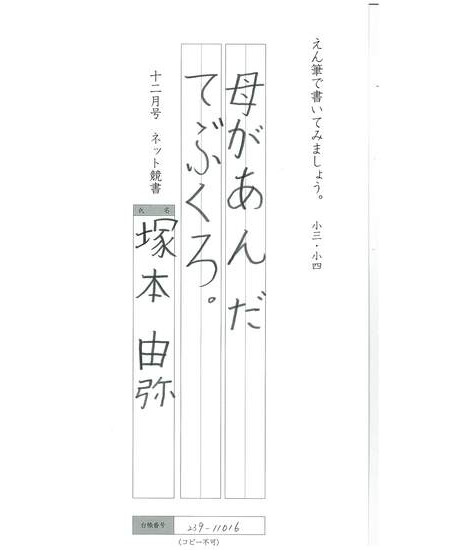 えん筆で書いてみましょう。 小三・小四
母があんだ
てぶくろ。
十二月号 ネット競書
氏名
塚本 由弥
台帳番号 239-11016
(コピー不可)